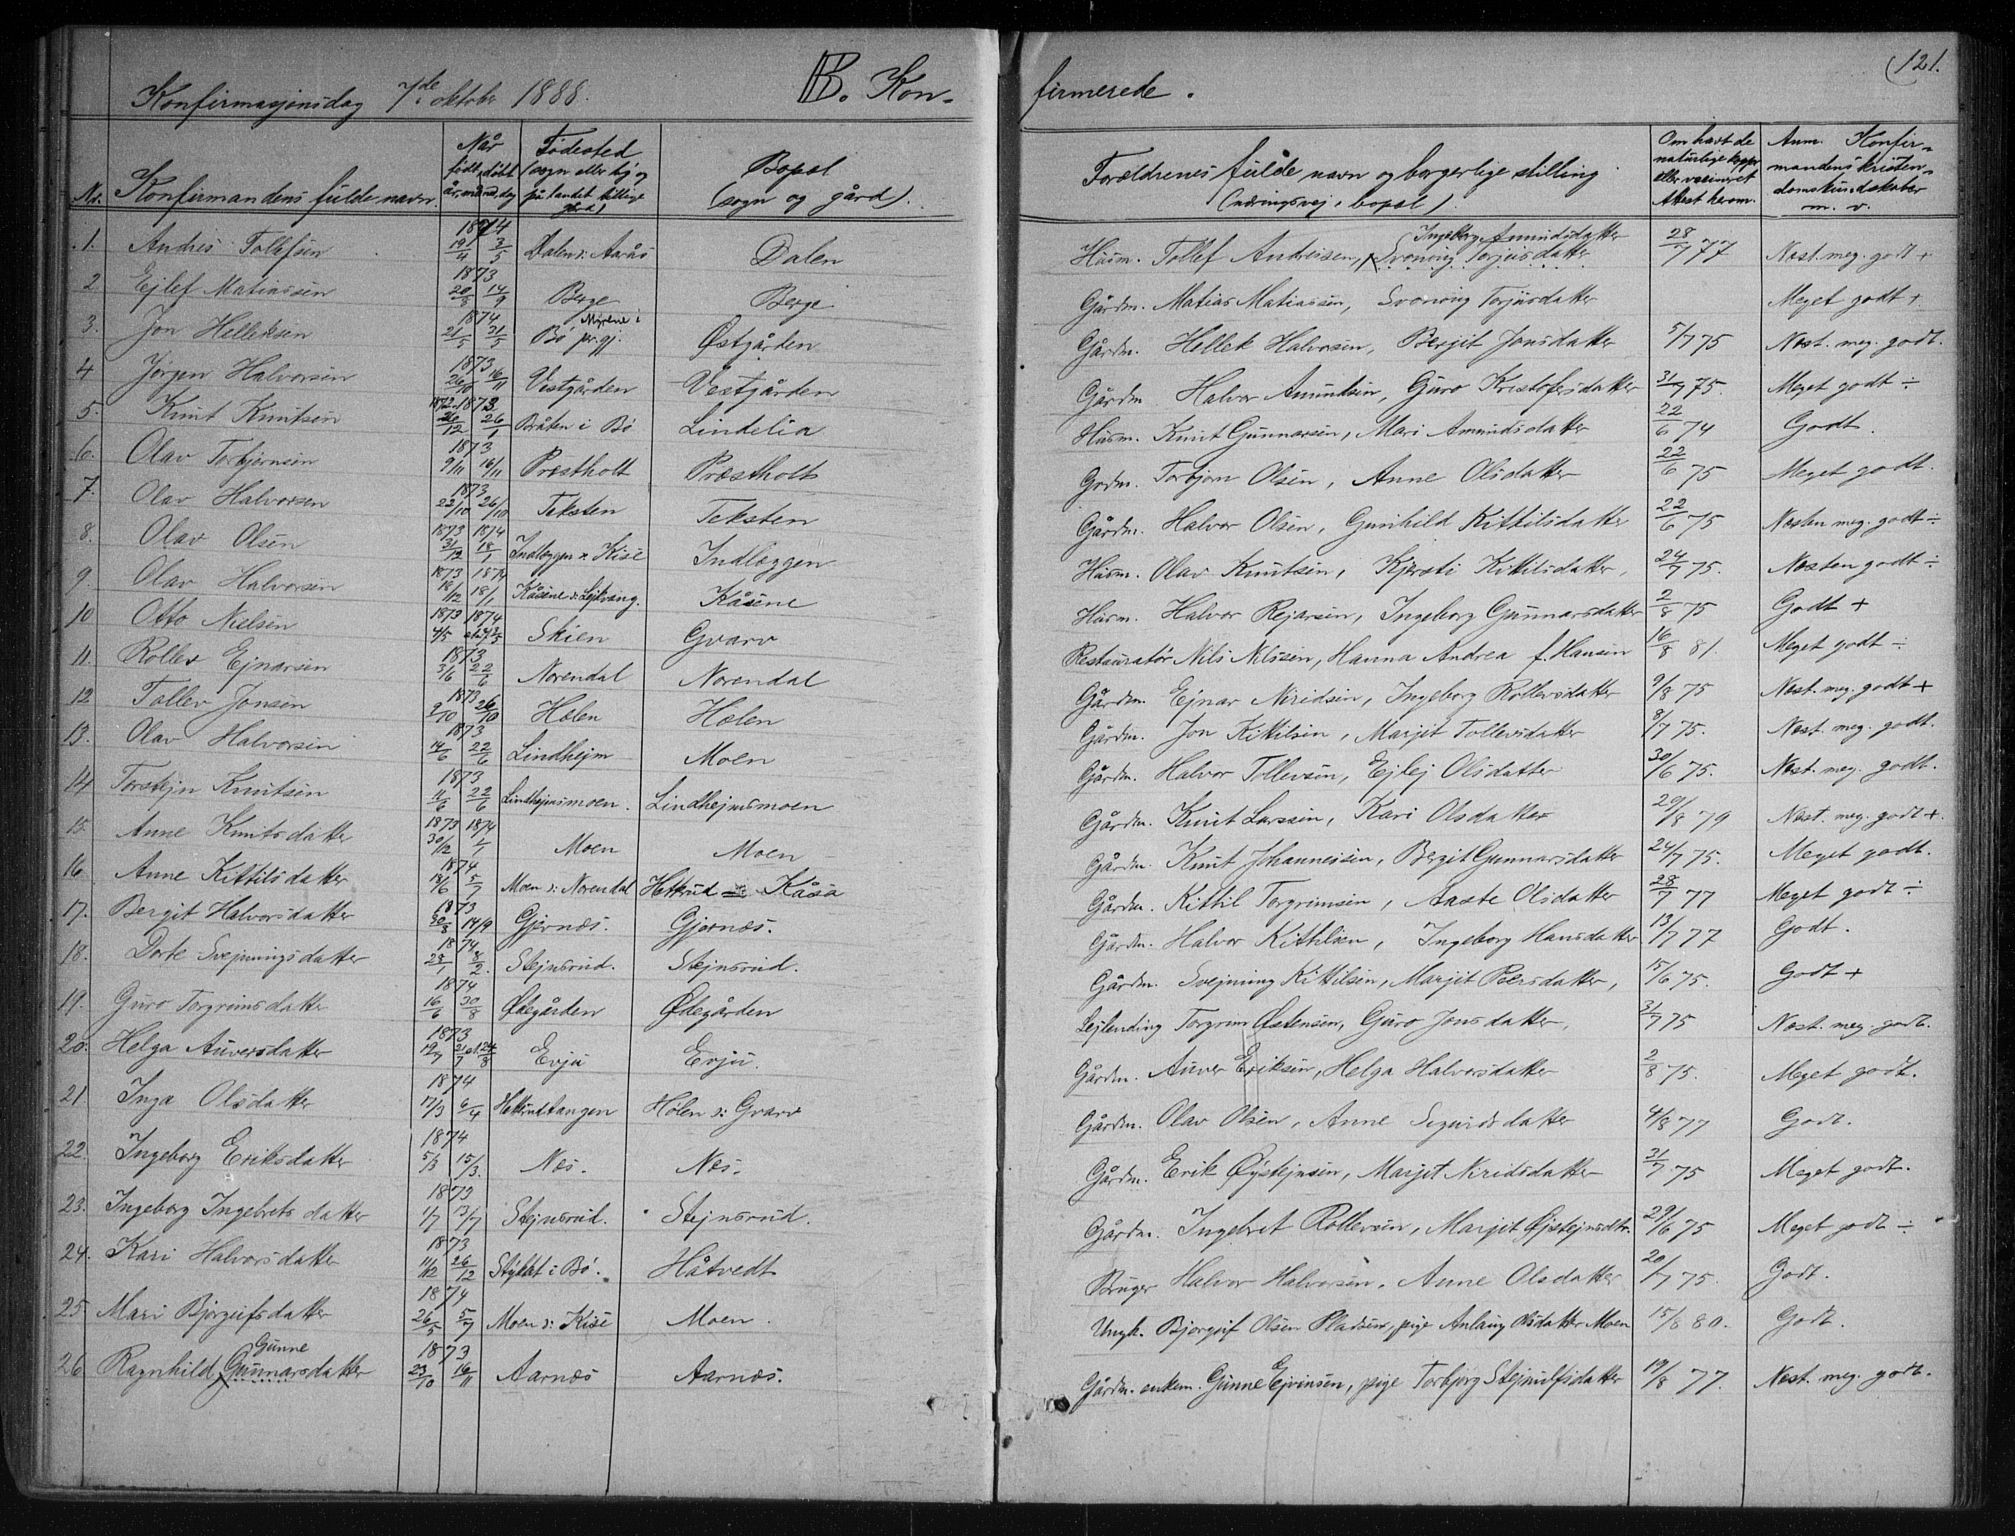 Konfirmasjonsdag 7de oktober 1888. B. Kon-
firmerede.
121.
Nr. Konfirmandens fulde navn.
Når født, døbt år, måned, dag
Fødested (sogn eller by og på landet tillige gård)
Bopæl (sogn og gård).
Forældrenes fulde navn og borgerlige stilling (næringsvej, bopæl)
Om havt de naturlige kopper eller vaccineret Attest herom.
Anm. Konfirmandens kristendomskundskaber m. v.
1. Andres Tollefsen 1874 19/4 3/5 Dalen s: Aarås Dalen Husm. Tollef Andreisen, Ingeborg Amundsdatter Svonūg Torjusdatter 28/7 77 Næst. meg. godt +
2 Ejlef Matiassen 1873 20/8 14/9 Berge Berge Gårdm. Matias Matiassen, Svonūg Torjusdatter Meget godt +
3. Jon Helleksen 1874 21/5 31/5 Bø pr.gj. Østgården Gårdm. Hellek Halvorsen, Bergit Jonsdatter 5/7 75 Næst. meg. godt.
4 Jørgen Halvorsen 1873 26/10 16/11 Vestgården Vestgården Gårdm Halvor Amundsen, Guro Kristofersdatter 31/7 75. Meget godt ÷
5. Knut Knutsen 1872 1873 26/12 26/1 Bråten i Bø Lindelia Husm. Knut Gunnarsen, Mari Amundsdatter 22/6 74 Godt.
6. Olav Torbjørnsen 1873 9/11 16/11 Præstholt Præstholt Gårdm. Torbjørn Olsen, Anne Olsdatter 22/6 75 Meget godt.
7. Olav Halvorsen 1873 22/10 26/10 Teksten Teksten Gårdm. Halvor Olsen, Gunhild Kittilsdatter 22/6 75 Næsten meg. godt ÷
8. Olav Olsen 1873 1874 31/12 18/1 Indlæggen s: Kise Indlæggen Husm. Olav Knutsen, Kjersti Kittilsdatter, 24/7 75. Næsten godt ÷
9. Olav Halvorsen 1873 1874 18/12 18/1 Kåsene s: Lejkvang. Kåsene Husm. Halvor Rejarsen, Ingeborg Gunnarsdatter 2/8 75 Godt +
10 Otto Nielsen 1873 1874 4/5 Skien Gvarv Restauratør Nils Nilssen, Hanna Andrea f. Hansen 16/8 81. Meget godt ÷
11. Rollev Ejnarsen 1873 3/6 22/6 Norendal Norendal Gårdm. Ejnar Niridsen, Ingeborg Rollevsdatter 9/8 75 Næst. meg. godt +
12 Tollev Jonsen 1873 9/10 26/10 Hælen Hælen Gårdm. Jon Kittilsen, Marjit Tollevsdatter 8/7 75. Næst. meg. godt.
13. Olav Halvorsen 1873 14/6 22/6 Lindhejm Moen Gårdm. Halvor Tollevsen, Ejlej Olsdatter 30/6 75. Næst. meg. godt.
14 Torstejn Knutsen 1873 11/6 22/6 Lindhejmsmoen. Lindhejmsmoen Gårdm. Knut Larssen, Kari Olsdatter 29/8 79 Næst. meg. godt +.
15. Anne Knutsdatter 1873 1874 30/12 1/1 Moen Moen Gårdm. Knut Johannessen, Bergit Gunnarsdatter 24/7 75. Meget godt.
16 Anne Kittilsdatter 1874 18/6 5/7 Moen s: Norendal Hettrud Kåsa Gårdm. Kittil Torgrimsen, Aaste Olsdatter 28/7 77 Meget godt ÷
17. Bergit Halvorsdatter 1873 30/8 14/9 Gjernæs. Gjernæs. Gårdm. Halvor Kittilsen, Ingeborg Hansdatter 13/7 77 Godt.
18. Dorte Svejnungsdatter 1874 28/1 8/2. Stejnsrud. Stejnsrud. Gårdm. Svejnung Kittilsen, Marjit Persdatter, 15/6 75. Godt +
19. Guro Torgrimsdatter 1874 16/6 30/8 Ødegården Ødegården Lejlending Torgrim Østensen, Guro Jonsdatter, 31/7 75 Næst. meg. godt.
20. Helga Auversdatter 1873 19/7 21/7 st. 24/8 Evju Evju. Gårdm. Auver Eriksen, Helga Halvorsdatter 2/8 75. Meget godt.
21 Inga Olsdatter 1874 17/3 6/4 Hettrudtangen Hølen s: Gvarv Gårdm. Olav Olsen, Anne Sigurdsdatter 4/8 77 Godt.
22. Ingeborg Eriksdatter 1874 5/3 15/3. Næs. Næs. Gårdm. Erik Øystejnsen, Marjit Niridsdatter 31/7 75 Meget godt.
23. Ingeborg Ingebretsdatter 1873 1/7 13/7 Stejnsrud. Stejnsrud. Gårdm. Ingebret Rollevsen, Marjit Øjstejnsdtr. 29/6 75 Meget godt ÷
24. Kari Halvorsdatter 1873 11/12 26/12 Stykket i Bø. Håtvedt Bruger Halvor Halvorsen, Anne Olsdatter 20/7 75. Godt.
25. Mari Bjørgufsdatter 1874 26/5 5/7 Moen s: Kise Moen. Ungk. Bjørguf Olsen Pladsen, pige Anlaug Olsdatter Moen 15/8 80. Godt.
26 Ragnhild Gunne Gunnarsdatter 1873 23/10 16/11 Aarnæs Aarnæs. Gårdm. enkem. Gunne Ejvinsen, pige Torbjørg Stejnulfsdatter 19/8 77. Næst. meg. godt.